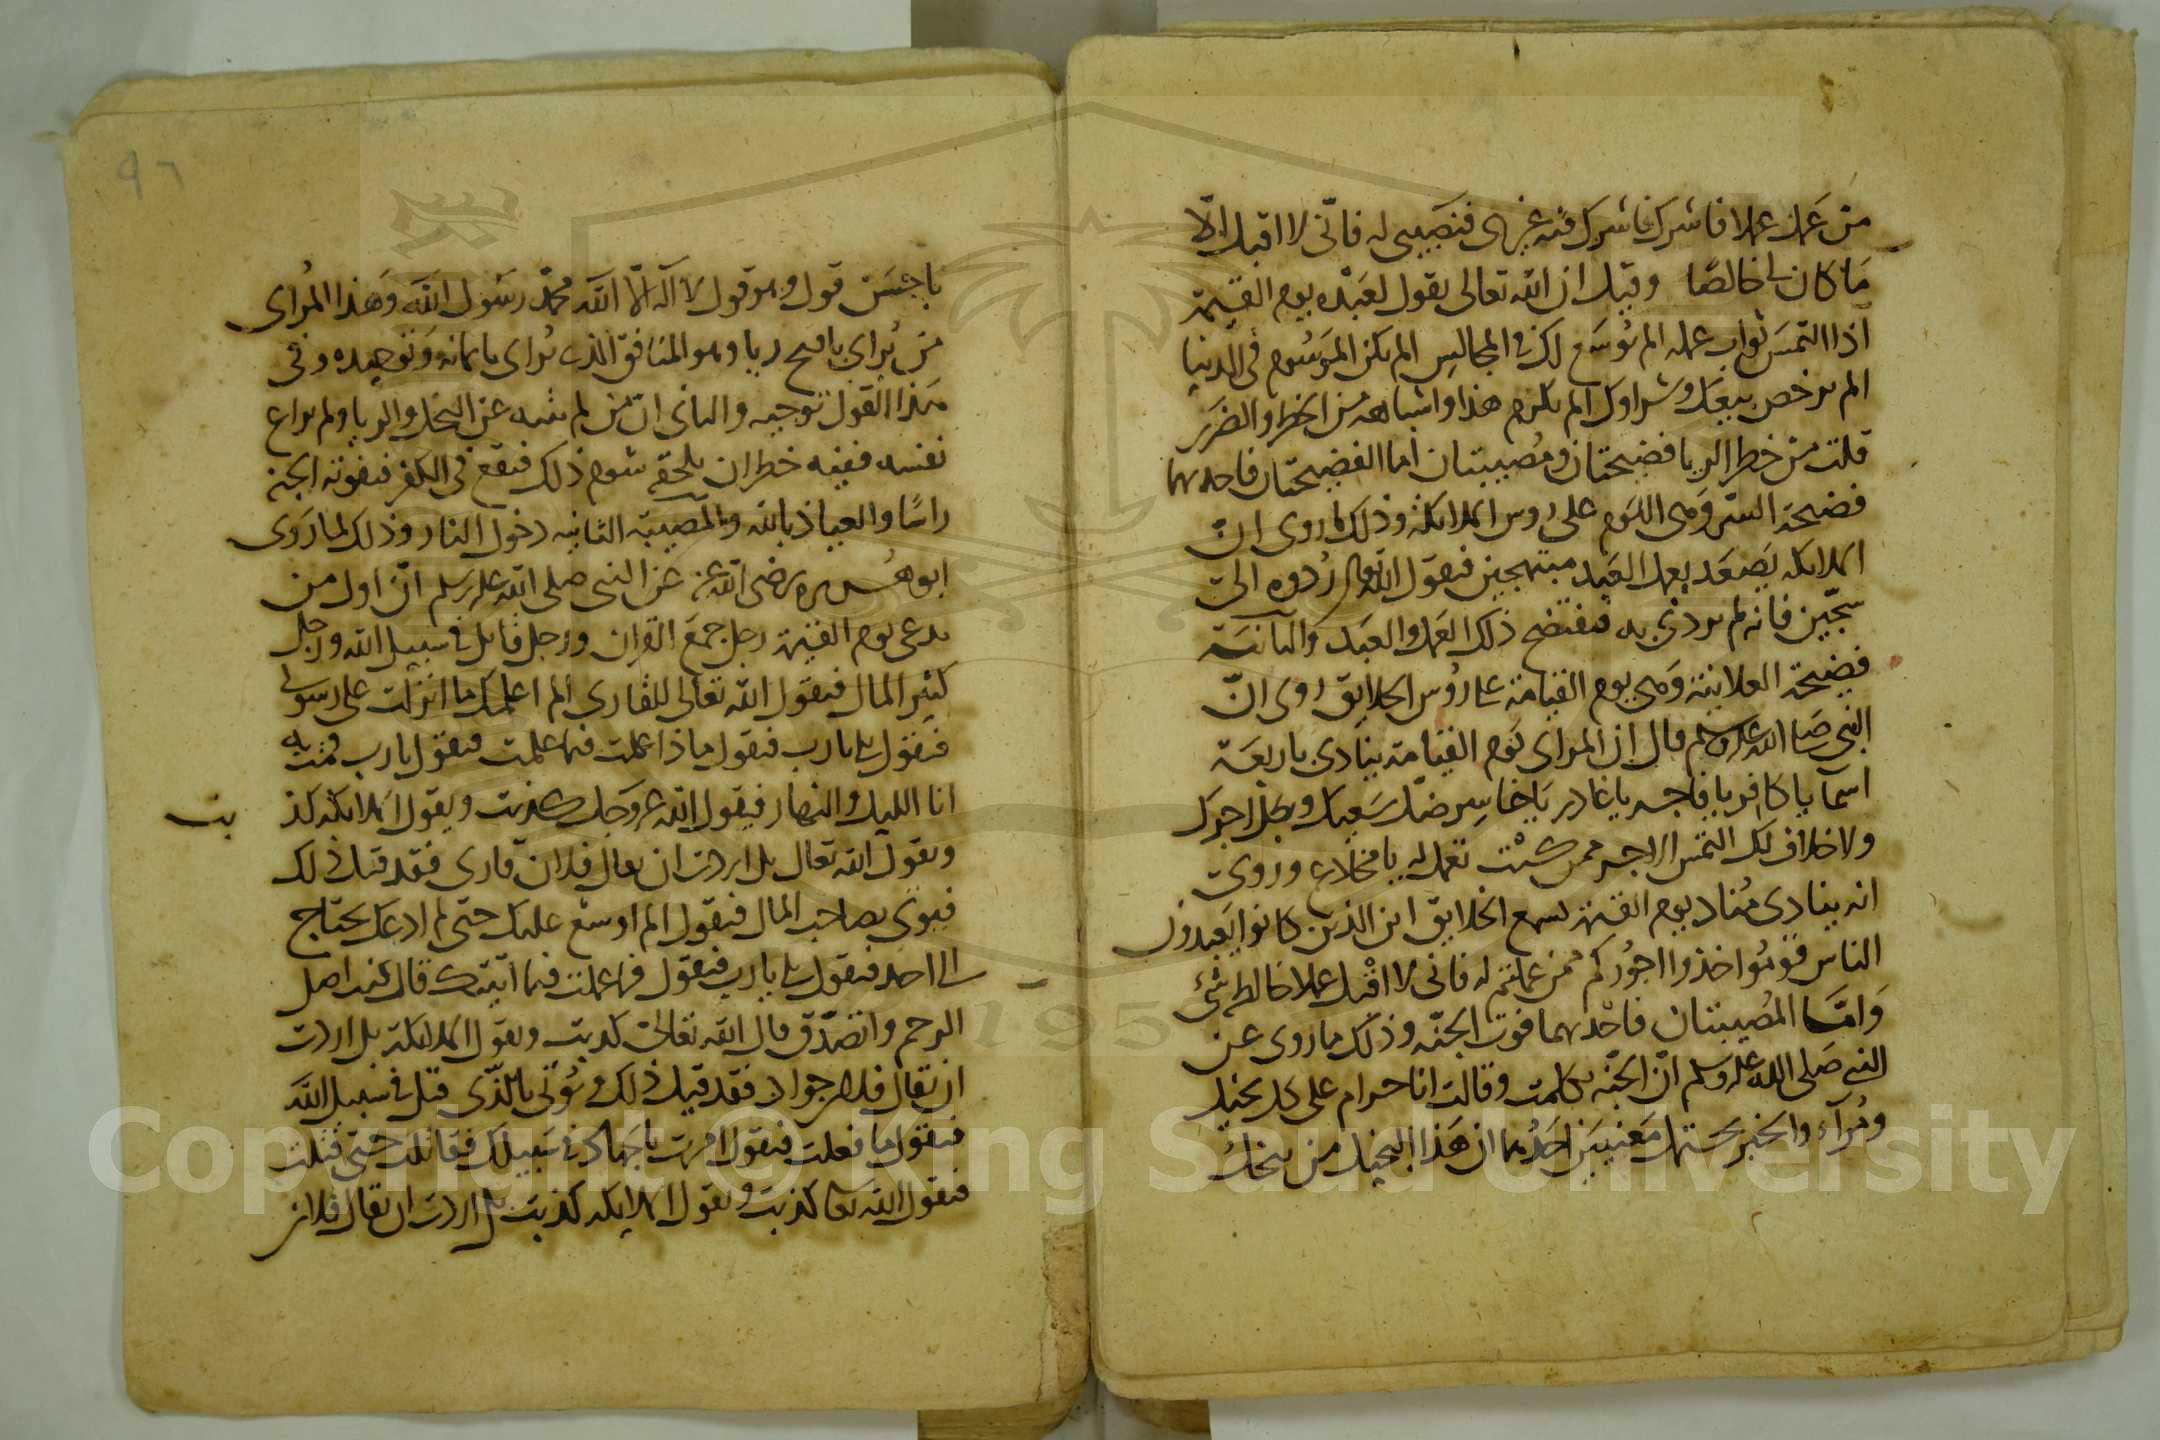 من عمل عملا فاشرك فاشرك فيه غيري فنصيبي له فاني لا اقبل الا
ما كان لي خالصا وقيل ان الله تعالى يقول لعبده يوم القيمة
اذا التمس ثواب عمله الم نوسع لك في المجالس الم تكن المرسوم في الدنيا
الم نرخص بيعك وشراوك الم تكرم هذا واشباهه من الخطر والضرر
قلت من خطر الريا فضيحتان ومصيبتان اما الفضيحتان فاحديهما
فضيحة السر وهي اللوم على روس الملايكة وذلك لما روى ان
الملايكة يصعد بعمل العبد مبتهجين فيقول الله تعالى ردوه الى
سجين فانه لم يردني به فيفتضح ذلك العمل والعبد والثانية
فضيحة العلانية وهي يوم القيامة على روس الخلايق روى ان
النبي صلى الله عليه وسلم قال ان المراى يوم القيامة ينادى باربعة
اسما يا كافر يا فاجر يا غادر يا خاسر ضل سعيك وبطل اجرك
ولا خلاق لك التمس الاجر ممن كنت تعمل له يا مخادع وروى
انه ينادى مناد يوم القيمة يسمع الخلايق اين الذين كانوا يعبدون
الناس قوموا خذوا اجوركم ممن عملتم له فاني لا اقبل عملا خالطه شئ
واما المصيبتان فاحديهما فوت الجنة وذلك ما روى عن
النبي صلى الله عليه وسلم ان الجنة تكلمت وقالت انا حرام على كل بخيل
ومرآء والخبر يحتمل معنيين احدهما ان هذا البخيل من بخل
٩٦
باحسن قول وهو قول لا اله الا الله محمد رسول الله وهذا المراى
من يراى باقبح ريا وهو المنافق الذى يراى بايمانه وتوحيده وفي
هذا القول توجيه والثاني ان من لم ينته عن البخل والريا ولم يراع
نفسه ففيه خطر ان يلحقه شوم ذلك فيقع في الكفر فيفوته الجنة
راسا والعياذ بالله والمصيبة الثانية دخول النار وذلك لما روى
ابو هريرة رضى الله عنه عن النبي صلى الله عليه وسلم ان اول من
يدعى يوم القيمة رجل جمع القران ورجل قاتل في سبيل الله ورجل
كثير المال فيقول الله تعالى للقارى الم اعلمك ما انزلت على رسولى
فيقول بلى يا رب فيقول ماذا عملت فيما علمت فيقول يا رب قمت به
انا الليل والنهار فيقول الله عز وجل كذبت ويقول الملايكة كذ
بت
ويقول الله تعالى بل اردت ان يقال فلان قارى فقد قيل ذلك
فيوتى بصاحب المال فيقول الم اوسع عليك حتى لم ادعك يحتاج
الى احد فيقول بلى يا رب فيقول فما عملت فيما اتيتك قال كنت اصل
الرحم واتصدق قال الله تعالى كذبت ويقول الملايكة بل اردت
ان يقال فلان جواد فقد قيل ذلك ويوتى بالذى قتل في سبيل الله
فيقول ما فعلت فيقول امرت بالجهاد في سبيلك فقاتلت حتى قتلت
فيقول الله تعالى كذبت ويقول الملايكة كذبت بل اردت ان يقال فلان
Copyright © King Saud University
1957